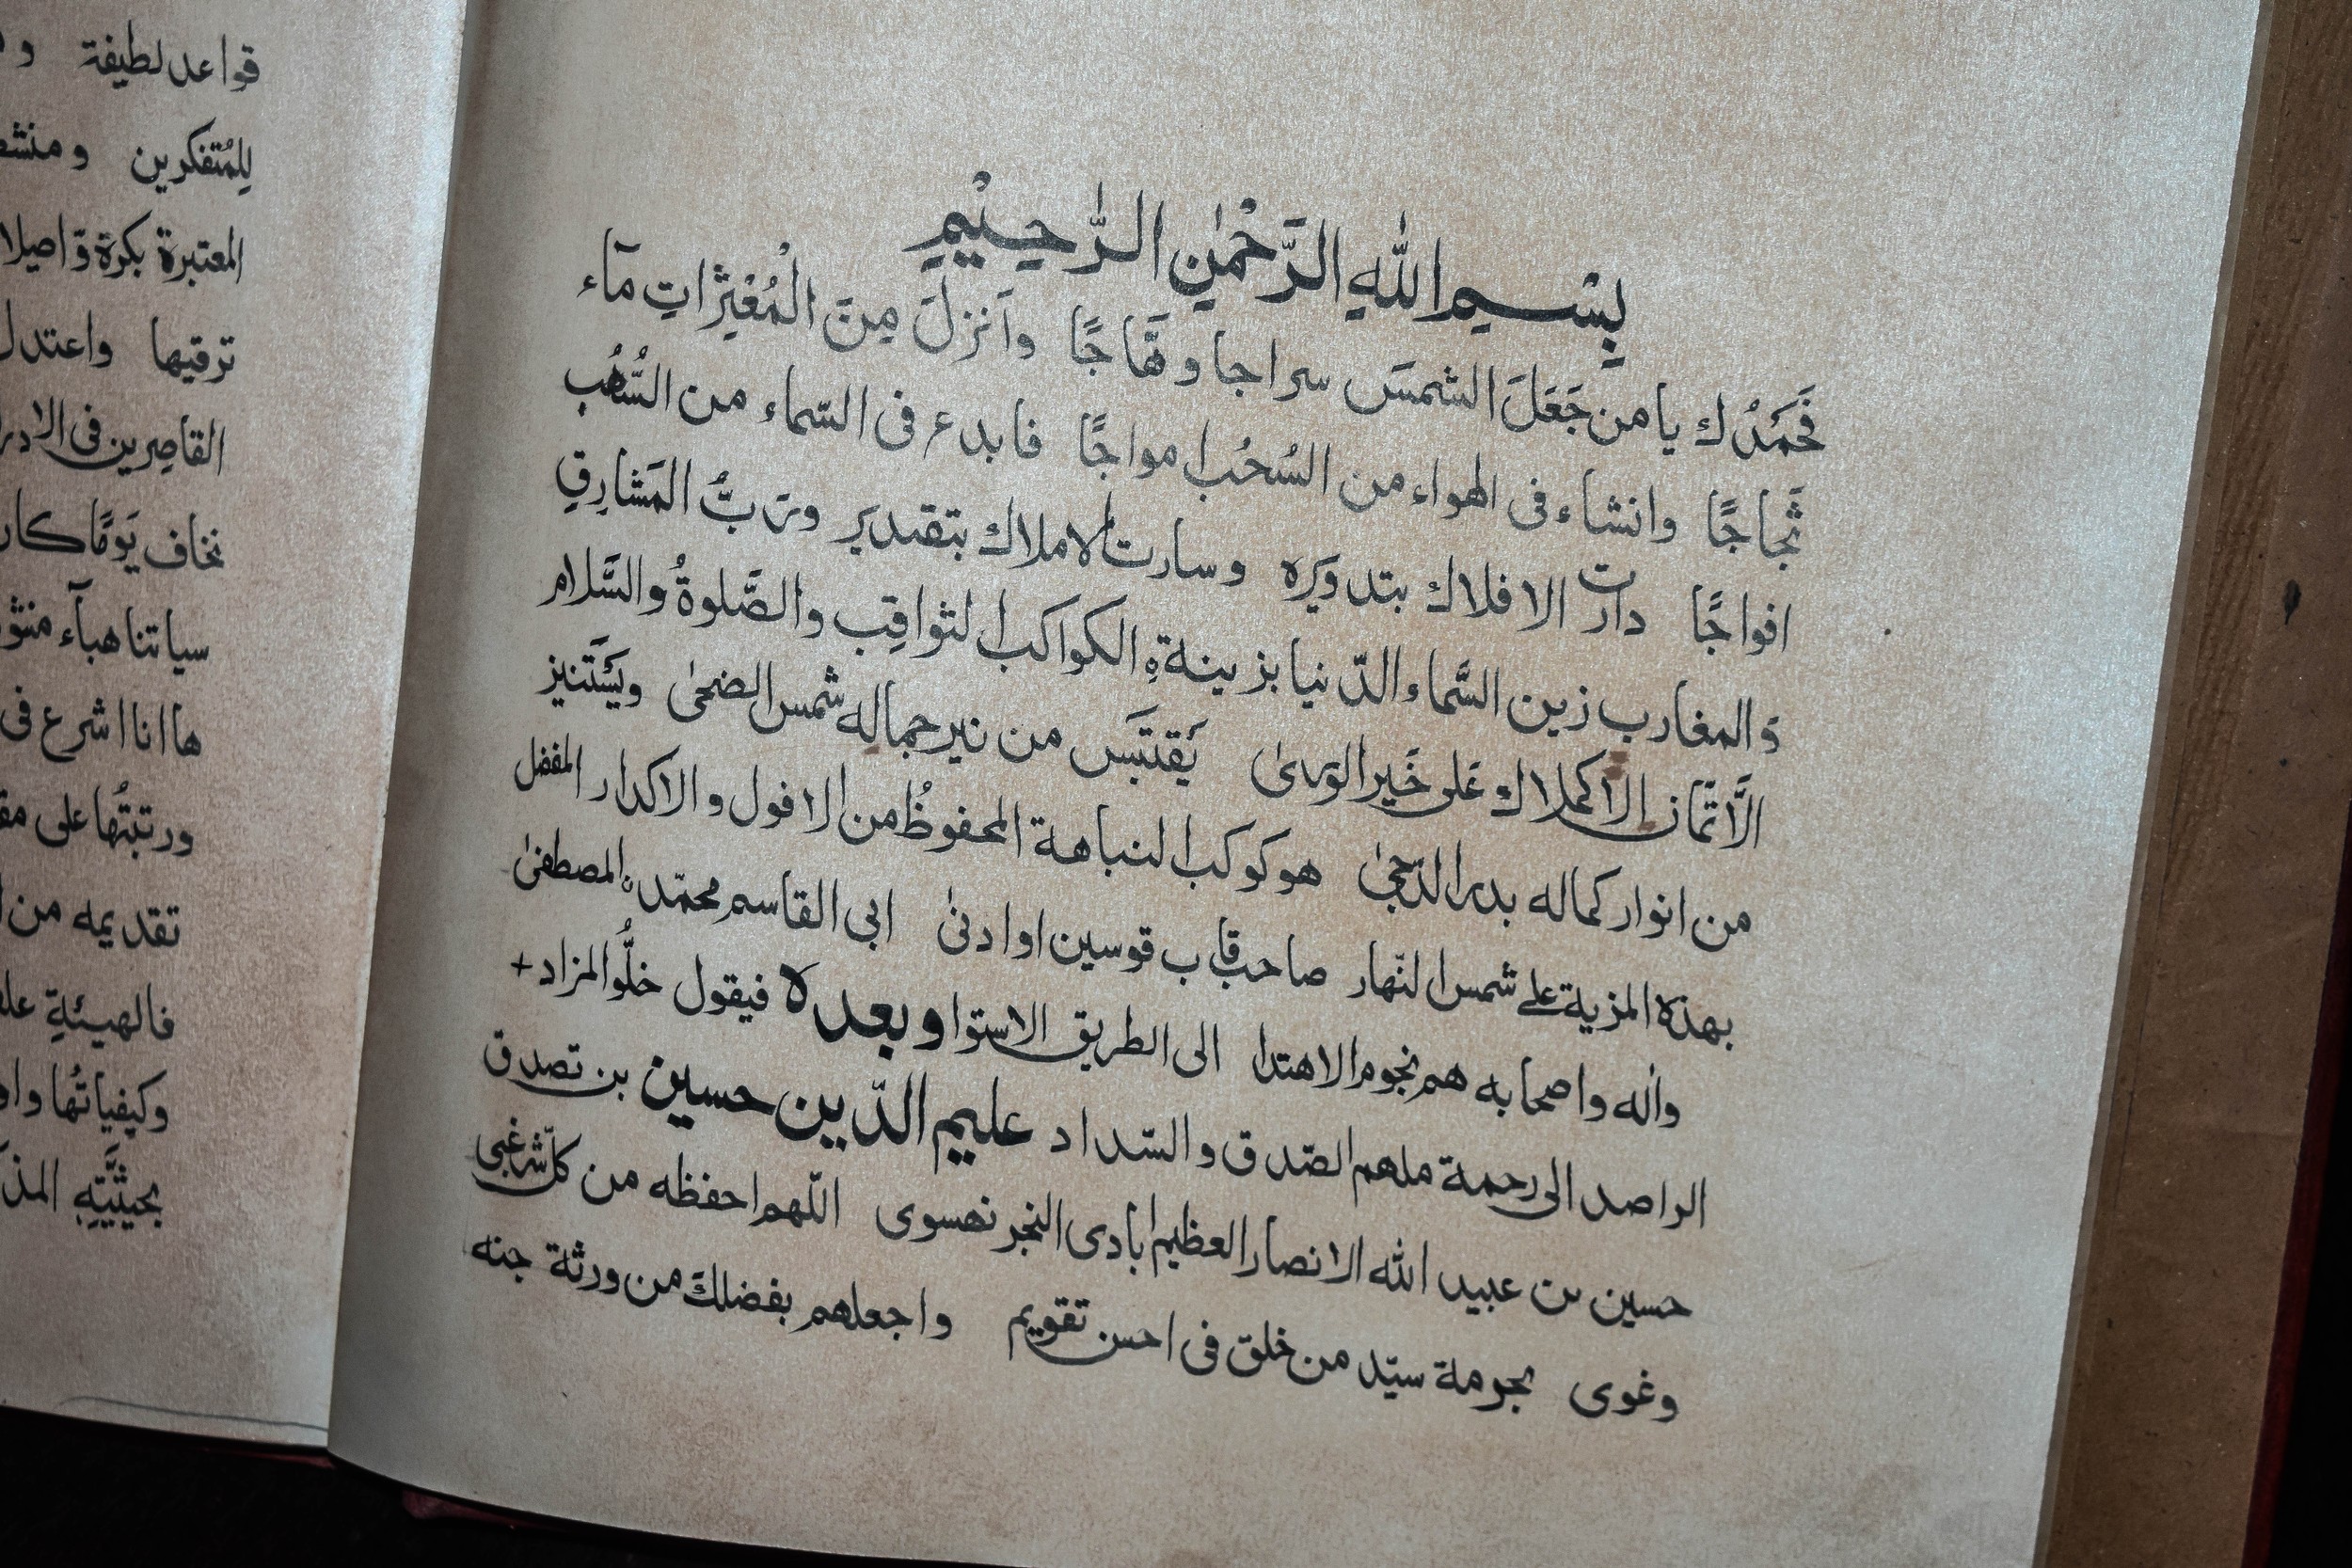 بِسْــمِ اللّٰهِ الرَّحْمٰنِ الرَّحِيْمِ
نَحْمَدُك يا من جَعَلَ الشمسَ سراجا وهَّاجًا وأنزلَ مِنَ الْمُعْصِرَاتِ مآء
ثَجاجًا وانشاء فى الهواء من السُحُب امواجًا فابدع فى السّماء من الشُهُب
افواجًا دارت الافلاك بتدويره وسارت الاملاك بتقديره ربُّ المَشارِقِ
وَالمغارب زين السَّماء الدّنيا بزينةِ الكواكب الثواقِب والصَّلوةُ والسَّلام
الَّاتمّان الاكملان عَلى خَير الورىٰ يَقتَبَس من نير جماله شمس الضحىٰ ويَسْتَنير
من انوار كماله بدر الدّجىٰ هو كوكب النباهة المحفوظُ من الافول والاكدار المفضل
بهذه المزية على شمس النّهار صاحب قاب قوسين او ادنىٰ ابى القاسم محمّد المصطفىٰ
واٰله واصحابه هم نجوم الاهتدا الى الطريق الاستوا وبعده فيقول خلُّو المزاد+
الراصد الى رحمة ملهم الصّدق والسّداد عليم الدّين حسين بن تصدق
حسين بن عبيد اللّٰه الانصار العظيم ابادى النجر نهسوى اللّهم احفظه من كلّ شر غبى
وغوى بحرمة سيّد من خلق فى احسن تقويم واجعلهم بفضلكَ من ورثة جنه
قواعد لطيفة
لِلمُتفكرين
المعتبرة بكرة وّ اصيلا
ترقيها واعتدل
القاصِرين فى
نخاف يَومًا كان
سياتنا هبآء
ها انا اشرع فى
ورتبتُها على
تقديمه من
فالهيئةِ
وكيفياتُها
بحيثيَّتِهِ